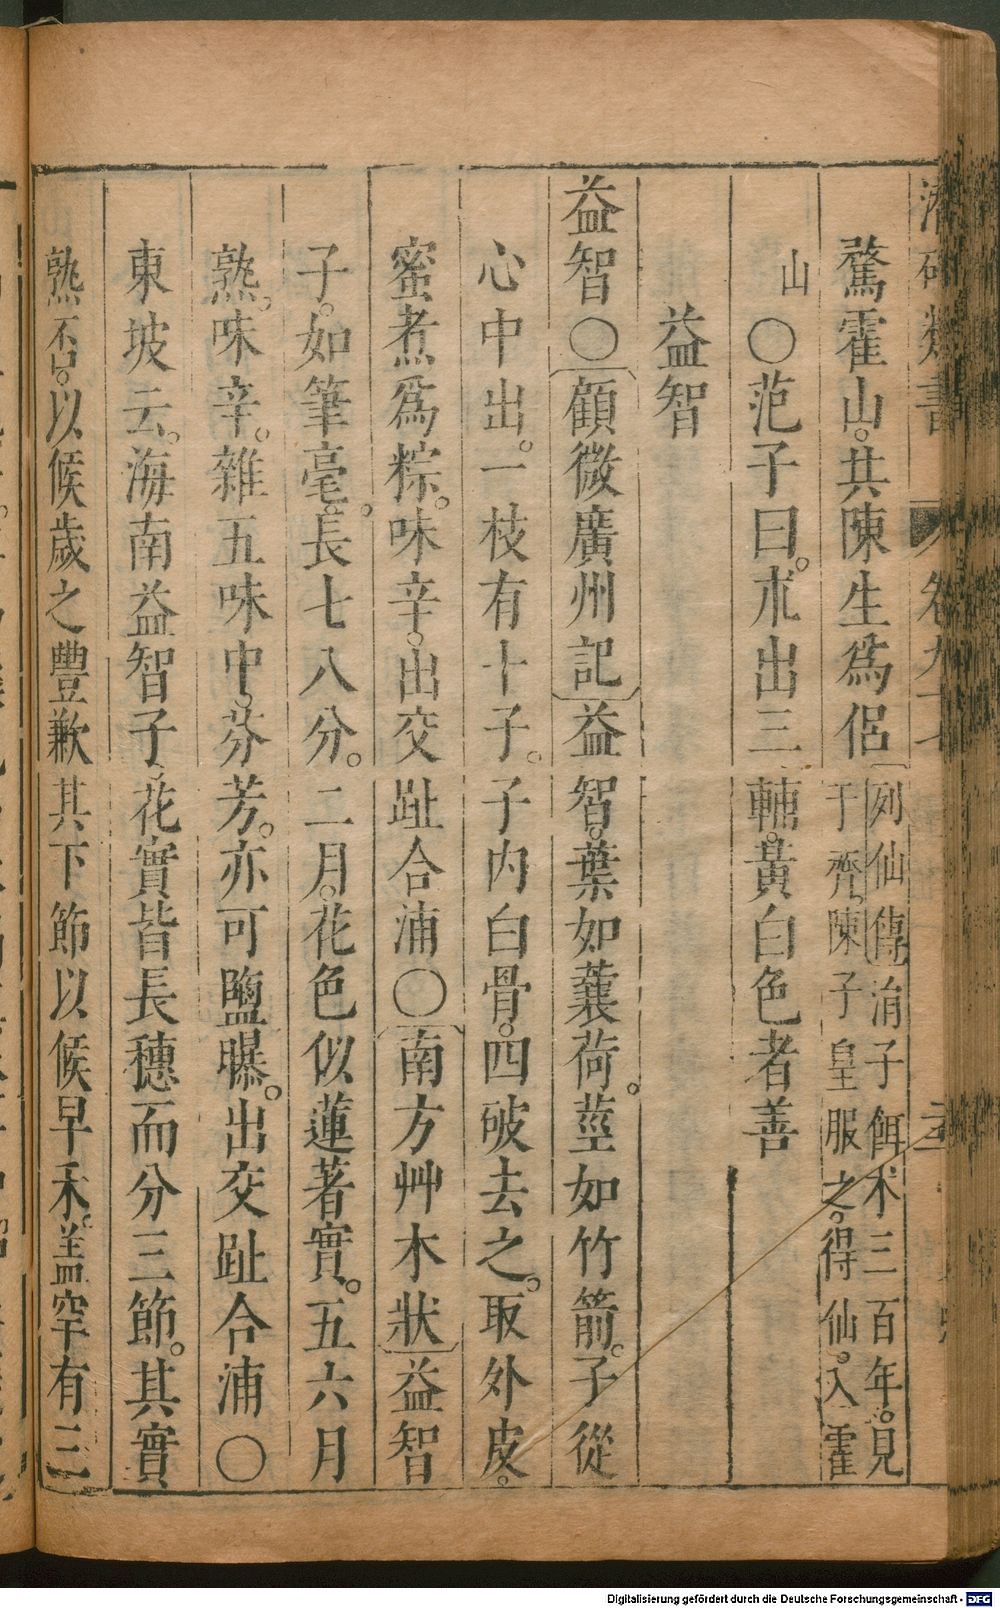 潛確類書 卷九十七
驁霍山。共陳生爲侶 列仙傳 涓子餌朮三百年。見
于齊。陳子皇服之。得仙。入霍
山 ○范子曰。朮出三輔。黃白色者善
益智
益智○顧微廣州記 益智。葉如蘘荷。莖如竹箭。子從
心中出。一枝有十子。子内白骨。四破去之。取外皮。
蜜煮爲粽。味辛。出交趾合浦○南方艸木狀 益智
子。如筆毫。長七八分。二月。花色似蓮著實。五六月
熟。味辛。雜五味中。芬芳。亦可鹽曝。出交趾合浦○
東坡云。海南益智子。花實皆長穗而分三節。其實
熟否。以候歲之豐歉其下節以候早禾。盖罕有三
Digitalisierung gefördert durch die Deutsche Forschungsgemeinschaft - DFG